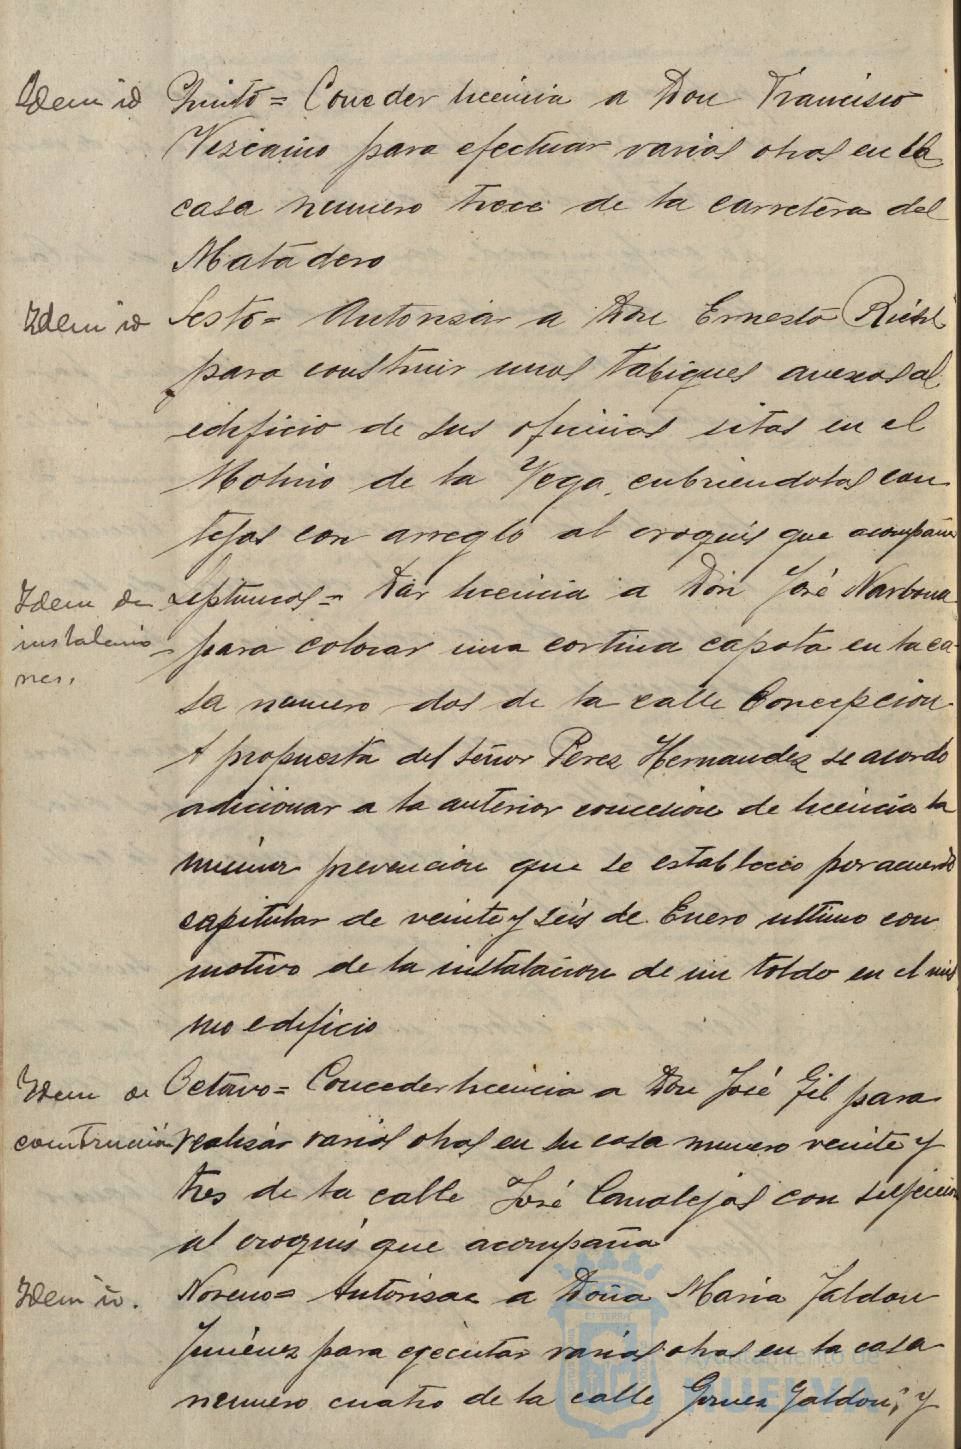 Idem id
Quinto = Conceder licencia a Don Francisco
Vizcaino para efectuar varias obras en la
casa numero trece de la carretera del
Matadero
Idem id
Sesto = Autorizar a Don Ernesto
para construir unos tabiques anexos al
edificio de sus oficinas sitas en el
Molino de la Vega, cubriendolos con
tejas con arreglo al croquis que acompaña
Idem de
instalacio
nes.
Septimo = Dar licencia a Don José Narbona
para colocar una cortina capota en la ca-
sa numero dos de la calle Concepcion
A propuesta del señor Perez Hernandez se acordó
adicionar a la anterior concesion de licencia la
misma prevencion que se establecio por acuerdo
capitular de veinte y seis de Enero ultimo con
motivo de la instalacion de un toldo en el mis
mo edificio
Idem de
construcción
Octavo = Conceder licencia a Don José Gil para
realizar varias obras en su casa numero veinte y
tres de la calle José Canalejas con sujecion
al croquis que acompaña
Idem id.
Noveno = Autorizar a Doña Maria Jaldon
Jiménez para ejecutar varias obras en la casa
numero cuatro de la calle Gomez Jaldon; y
Ayuntamiento de
HUELVA